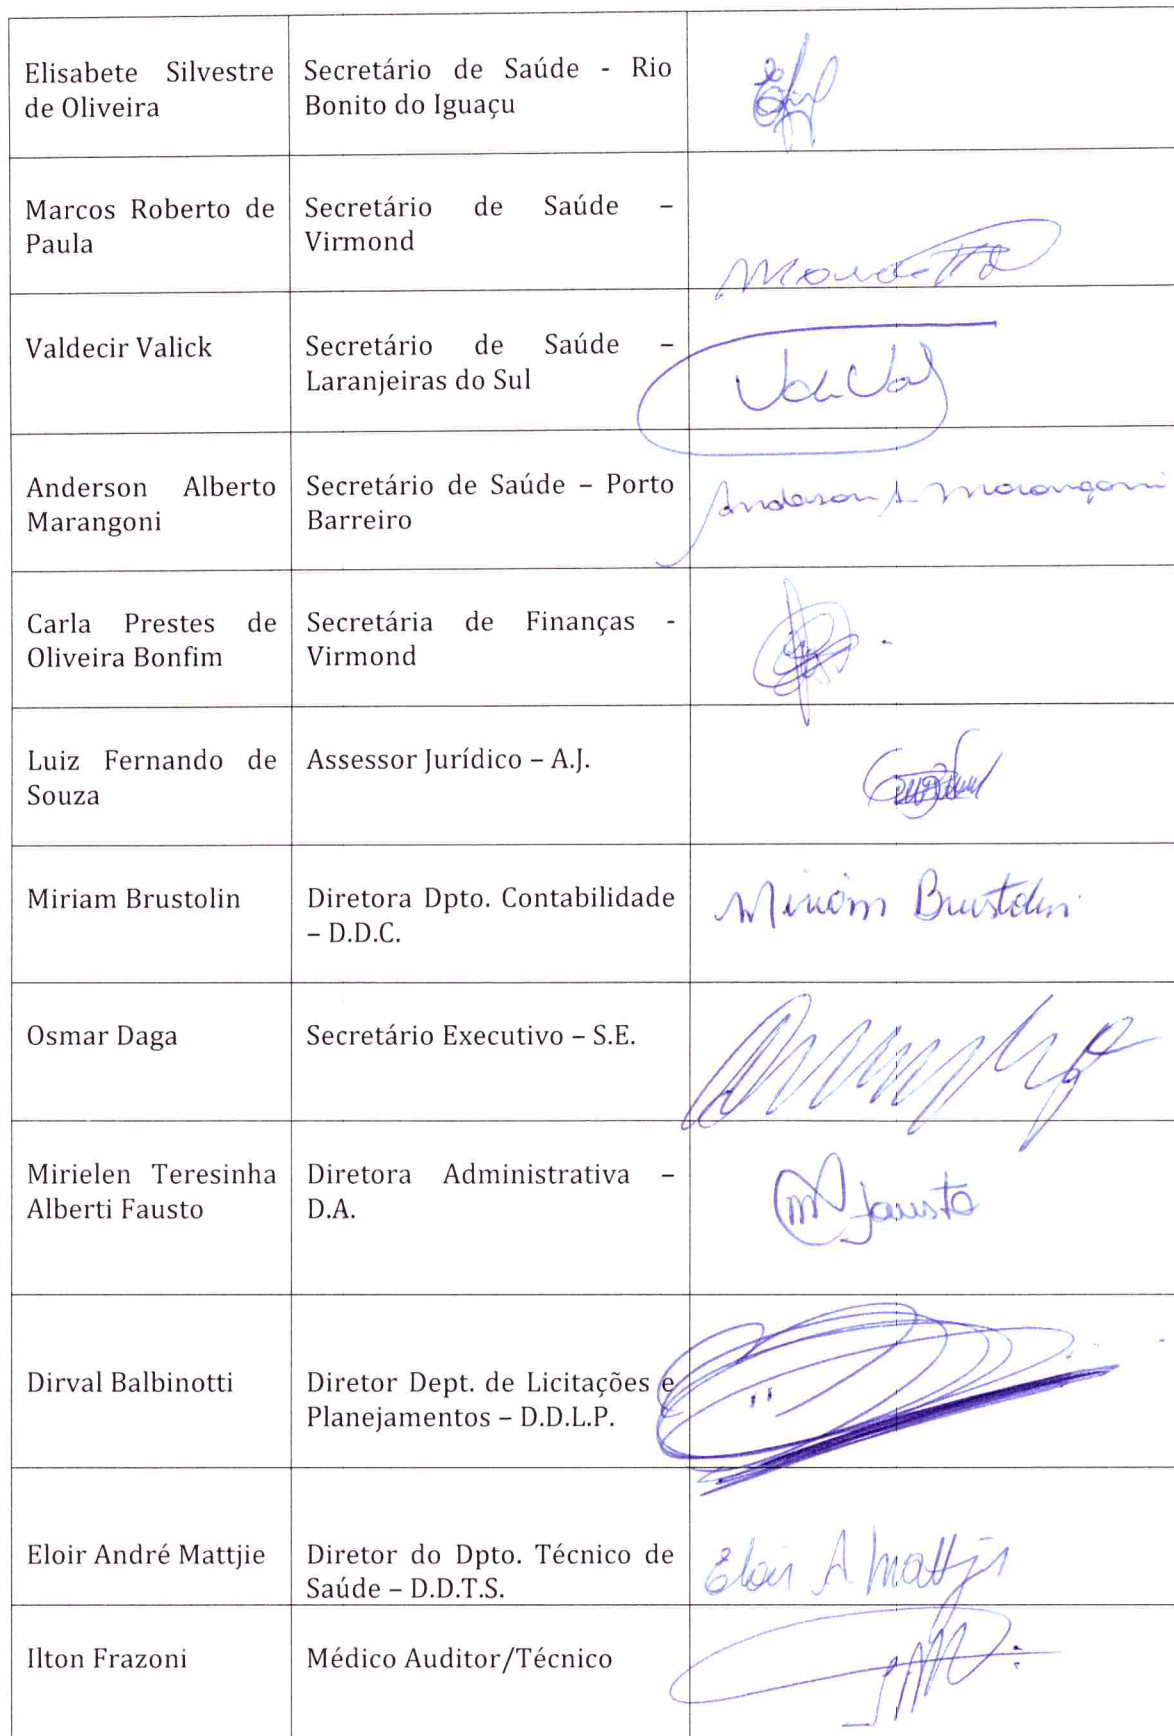 Elisabete Silvestre
de Oliveira
Secretário de Saúde - Rio
Bonito do Iguaçu
Marcos Roberto de
Paula
Secretário de Saúde –
Virmond
Valdecir Valick
Secretário de Saúde –
Laranjeiras do Sul
Anderson Alberto
Marangoni
Secretário de Saúde – Porto
Barreiro
Anderson A Marangoni
Carla Prestes de
Oliveira Bonfim
Secretária de Finanças -
Virmond
Luiz Fernando de
Souza
Assessor Jurídico – A.J.
Miriam Brustolin
Diretora Dpto. Contabilidade
– D.D.C.
Miriam Brustolin
Osmar Daga
Secretário Executivo – S.E.
Mirielen Teresinha
Alberti Fausto
Diretora Administrativa –
D.A.
M Fausto
Dirval Balbinotti
Diretor Dept. de Licitações e
Planejamentos – D.D.L.P.
Eloir André Mattjie
Diretor do Dpto. Técnico de
Saúde – D.D.T.S.
Eloir A Mattjie
Ilton Frazoni
Médico Auditor/Técnico